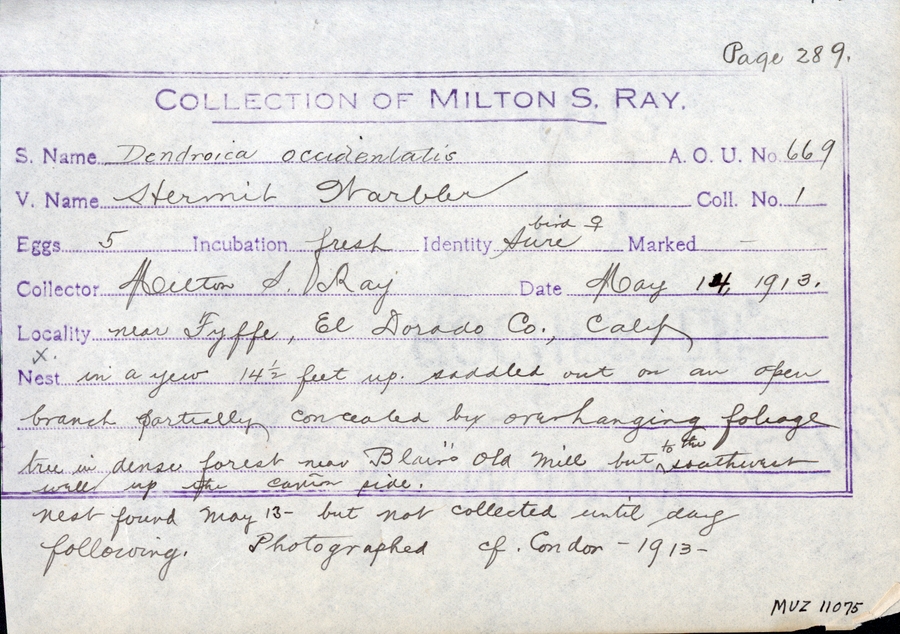 Page 289.
COLLECTION OF MILTON S. RAY.
S. Name Dendroica occidentalis A. O. U. No. 669
V. Name Hermit Warbler Coll. No. 1
Eggs 5 Incubation fresh Identity bird ♀ sure Marked —
Collector Milton S. Ray Date May 14, 1913.
Locality near Fyffe, El Dorado Co., Calif
x.
Nest in a yew 14½ feet up. saddled out on an open
branch partially concealed by overhanging foliage
tree in dense forest near Blair's Old Mill but to the southwest
well up the cañon side.
nest found May 13- but not collected until day
following. Photographed cf. Condor - 1913-
MVZ 11075